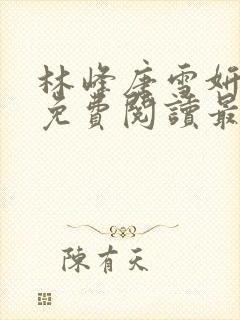 林峰唐雪妍
免費閱讀最
陳有天